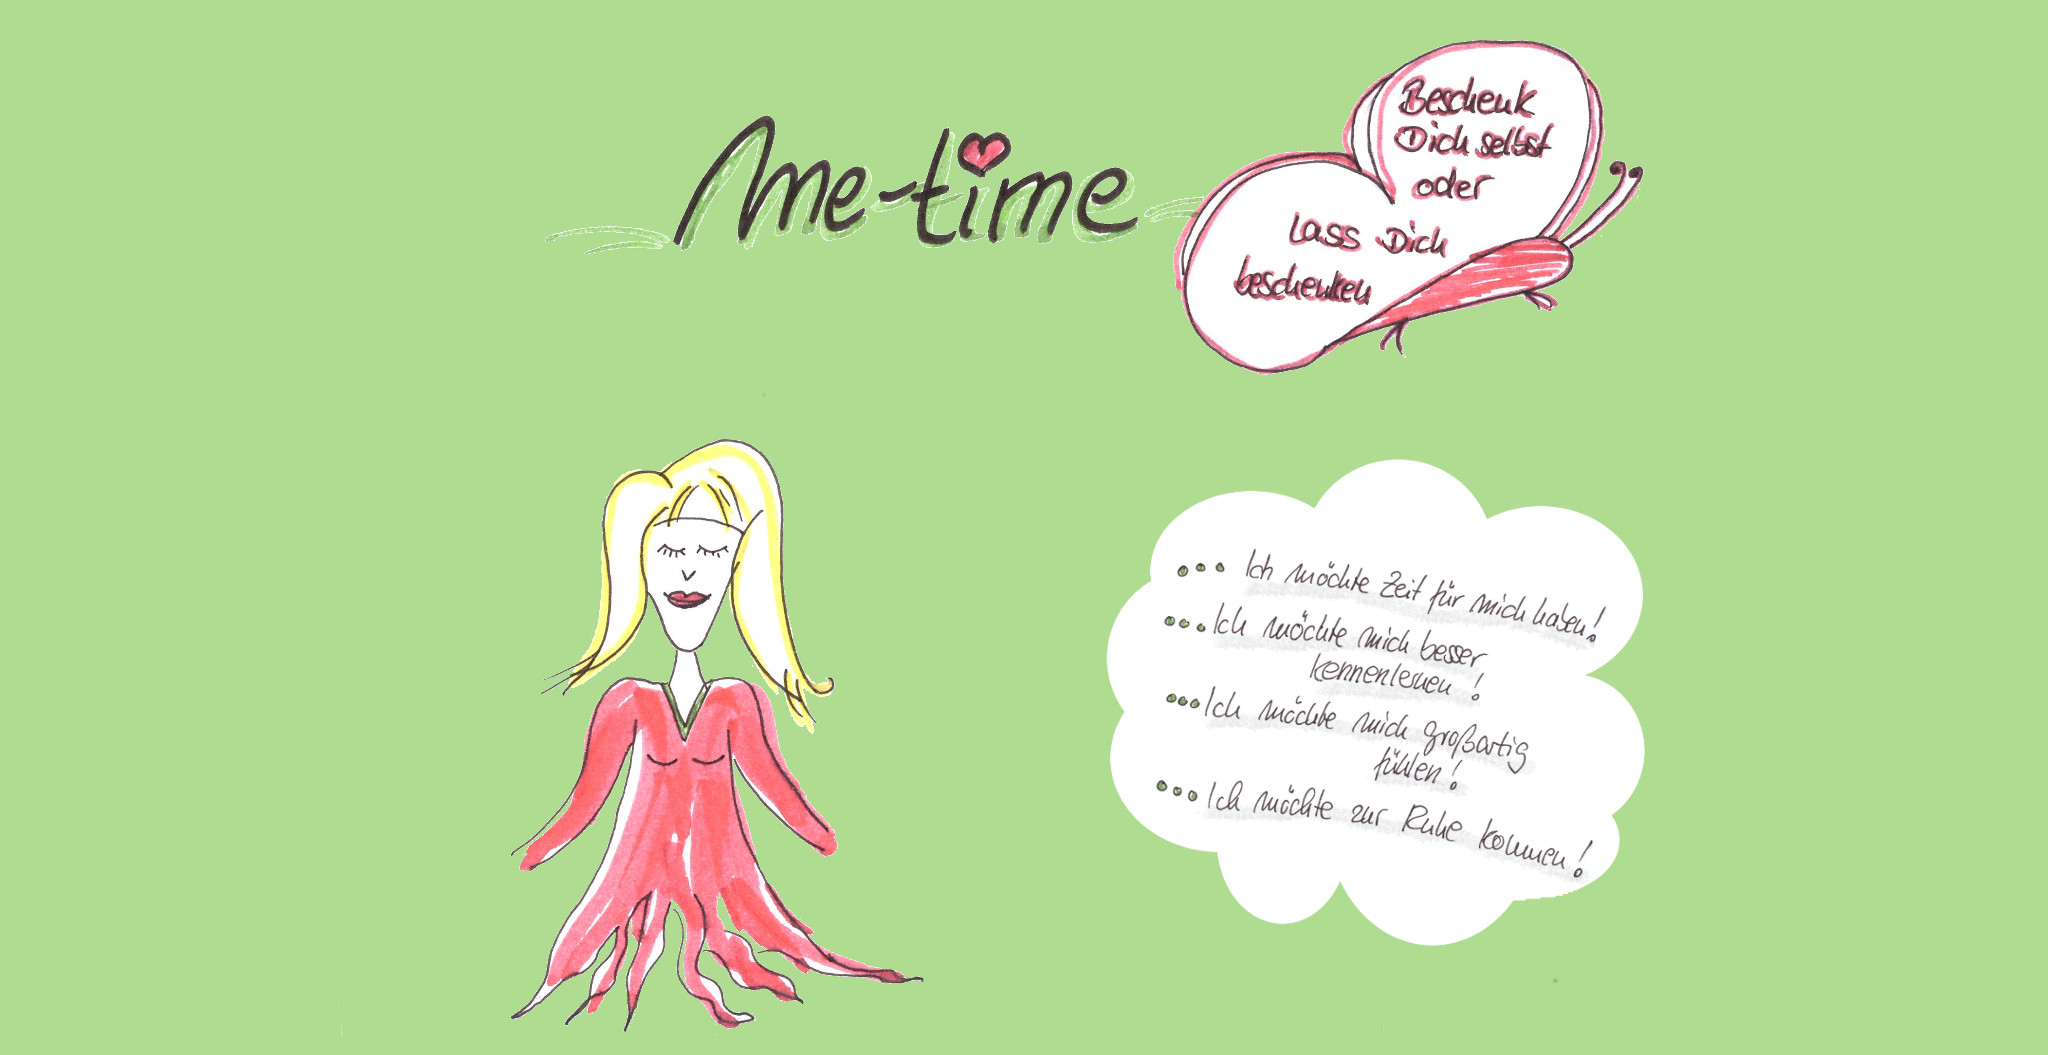 me-time
Beschenk
Dich selbst
oder
lass Dich
beschenken
... Ich möchte Zeit für mich haben!
... Ich möchte mich besser
kennenlernen!
... Ich möchte mich großartig
fühlen!
... Ich möchte zur Ruhe kommen!